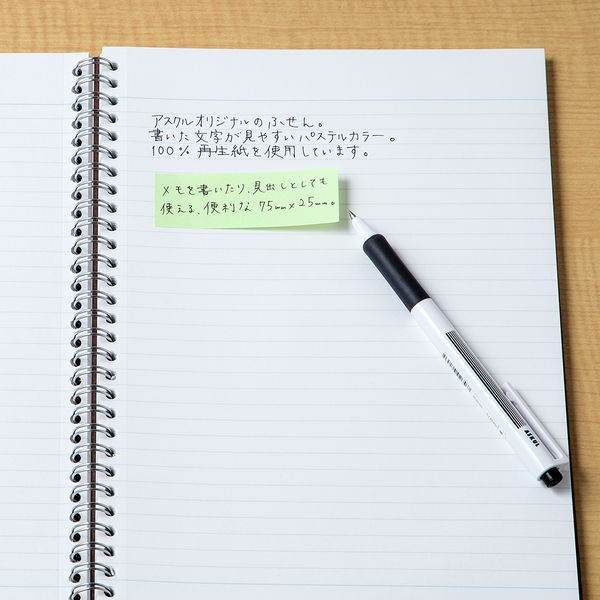 アスクルオリジナルのふせん。
書いた文字が見やすいパステルカラー。
100% 再生紙を使用しています。
メモを書いたり、見出しとしても
使える、便利な 75mm×25mm。
ASKUL